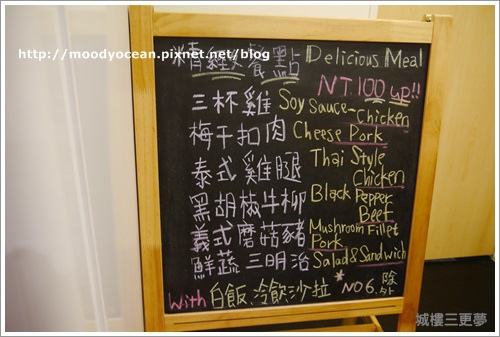 http://moodyocean.pixnet.net/blog
精緻餐點 Delicious Meal
NT.100 up!!
三杯雞 Soy Sauce-Chicken
梅干扣肉 Cheese Pork
泰式雞腿 Thai Style Chicken
黑胡椒牛柳 Black Pepper Beef
義式磨菇豬 Mushroom Fillet Pork
鮮蔬三明治 Salad & Sandwich
With 白飯、冷飲沙拉 *NO6.除外
城樓三更夢